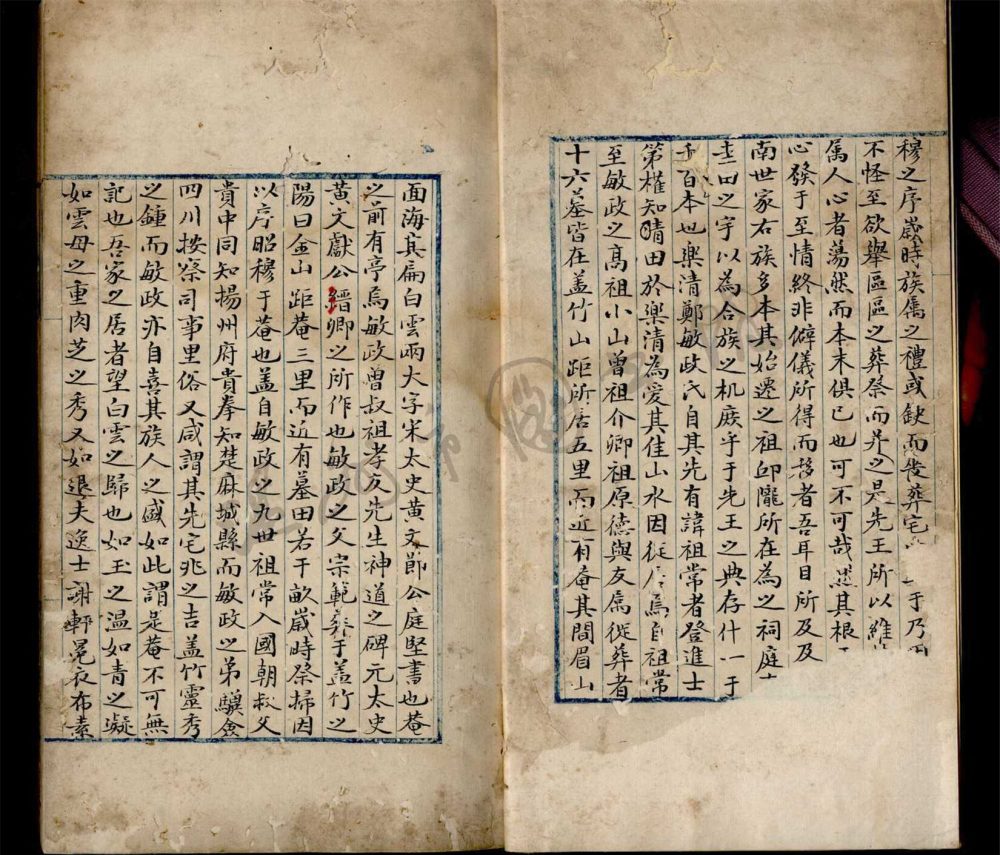 穆之序歲時族雋之禮或缺而發葬宅于乃
不怪至欲舉區區之葬祭而并之是先王所以維
屬人心者蕩然而本末俱亡也可不可哉其根
心發于至情終非僻儀所得而移者吾耳目所及及
南世家右族多本其始遷之祖邱隴所在為之祠庭
圭田之守以為合族之机庶乎于先王之典存什一于
千百本也樂清鄭敏政氏自其先有諱祖常者登進士
第權知晴田於樂清為愛其佳山水因徙居焉自祖常
至敏政之髙祖小山曾祖介卿祖原德與友為從葬者
十六墓皆在盖竹山距所居五里而近有庵其間眉山
面海其扁白雲兩大字宋太史黄文節公庭堅書也菴
之前有亭焉敏政曾叔祖孝友先生神道之碑元太史
黄文獻公縉卿之所作也敏政之父宗範葬于盖竹之
陽曰金山距菴三里而近有墓田若干畝歲時祭掃因
以序昭穆于菴也盖自敏政之九世祖常入國朝叔父
貴中同知揚州府貴奉知楚麻城縣而敏政之弟驥僉
四川按察司事里俗又咸謂其先宅兆之吉盖竹靈秀
之鍾而敏政亦自喜其族人之盛如此謂是菴不可無
記也吾家之居者望白雲之歸也如玉之温如青之凝
如雲母之重肉芝之秀又如退夫逸士謝軒冕衣布素